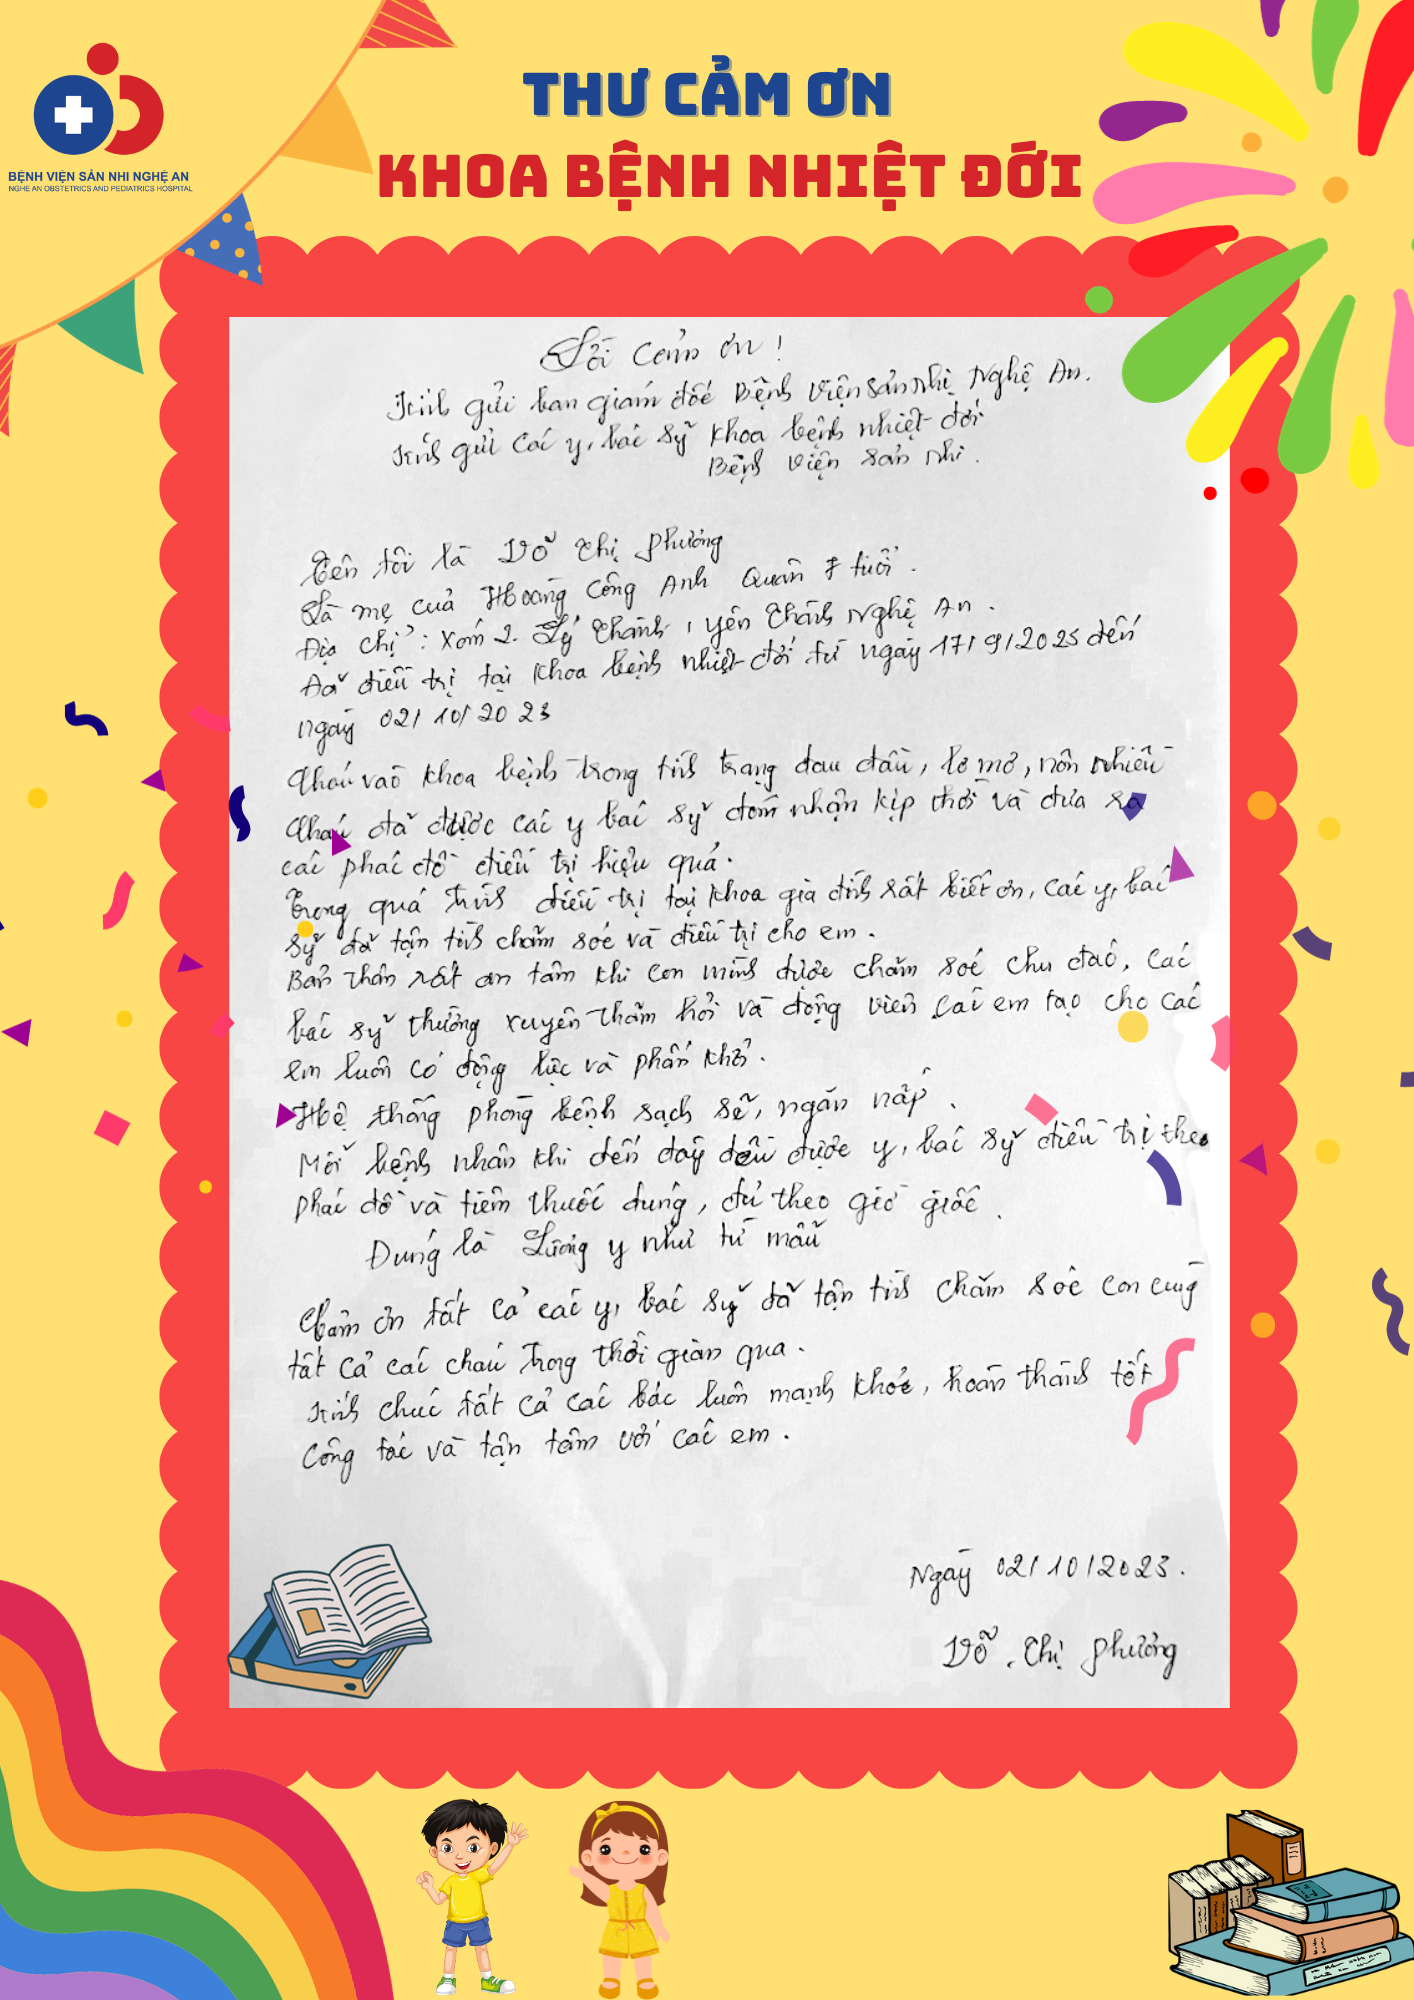 BỆNH VIỆN SẢN NHI NGHỆ AN
NGHE AN OBSTETRICS AND PEDIATRICS HOSPITAL
THƯ CẢM ƠN
KHOA BỆNH NHIỆT ĐỚI
Lời Cảm ơn !
Kính gửi ban giám đốc Bệnh Viện Sản nhi Nghệ An.
Kính gửi các y, bác sỹ khoa bệnh nhiệt đới
Bệnh viện sản nhi.
Tên tôi là Võ Thị Phương
Là mẹ của Hoàng Công Anh Quân 7 tuổi.
Địa chỉ: Xóm 2. Lý Thành, Yên Thành Nghệ An.
Đã điều trị tại khoa bệnh nhiệt đới từ ngày 17/9/2023 đến
ngày 02/10/2023
Cháu vào khoa bệnh trong tình trạng đau đầu, lơ mơ, nôn nhiều
Cháu đã được các y bác sỹ đón nhận kịp thời và đưa ra
các phác đồ điều trị hiệu quả.
Trong quá trình điều trị tại khoa gia đình rất biết ơn, các y, bác
sỹ đã tận tình chăm sóc và điều trị cho em.
Bản thân rất an tâm khi con mình được chăm sóc chu đáo, các
bác sỹ thường xuyên thăm hỏi và động viên các em tạo cho các
em luôn có động lực và phấn khởi.
Hệ thống phòng bệnh sạch sẽ, ngăn nắp.
Mỗi bệnh nhân khi đến đây đều được y, bác sỹ điều trị theo
phác đồ và tiêm thuốc đúng, đủ theo giờ giấc.
Đúng là Lương y như từ mẫu
Cảm ơn tất cả các y, bác sỹ đã tận tình chăm sóc con cùng
tất cả các cháu trong thời gian qua.
Kính chúc tất cả các bác luôn mạnh khoẻ, hoàn thành tốt
công tác và tận tâm với các em.
Ngày 02/10/2023.
Võ. Thị Phương